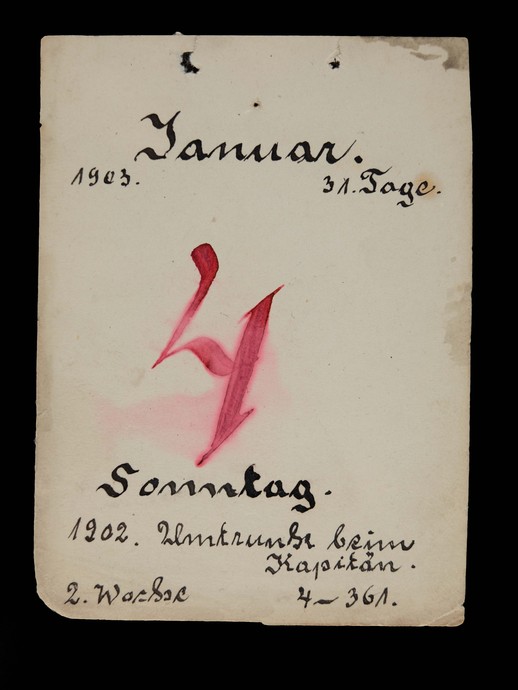 Januar.
1903. 31. Tage.
4
Sonntag.
1902. Umtrunk beim
Kapitän.
2. Woche 4–361.